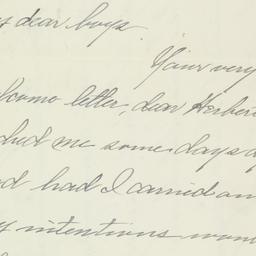 dear boys.
Your very
lcome letter, dear Herber
ched me some days a
had I carried on
intentions